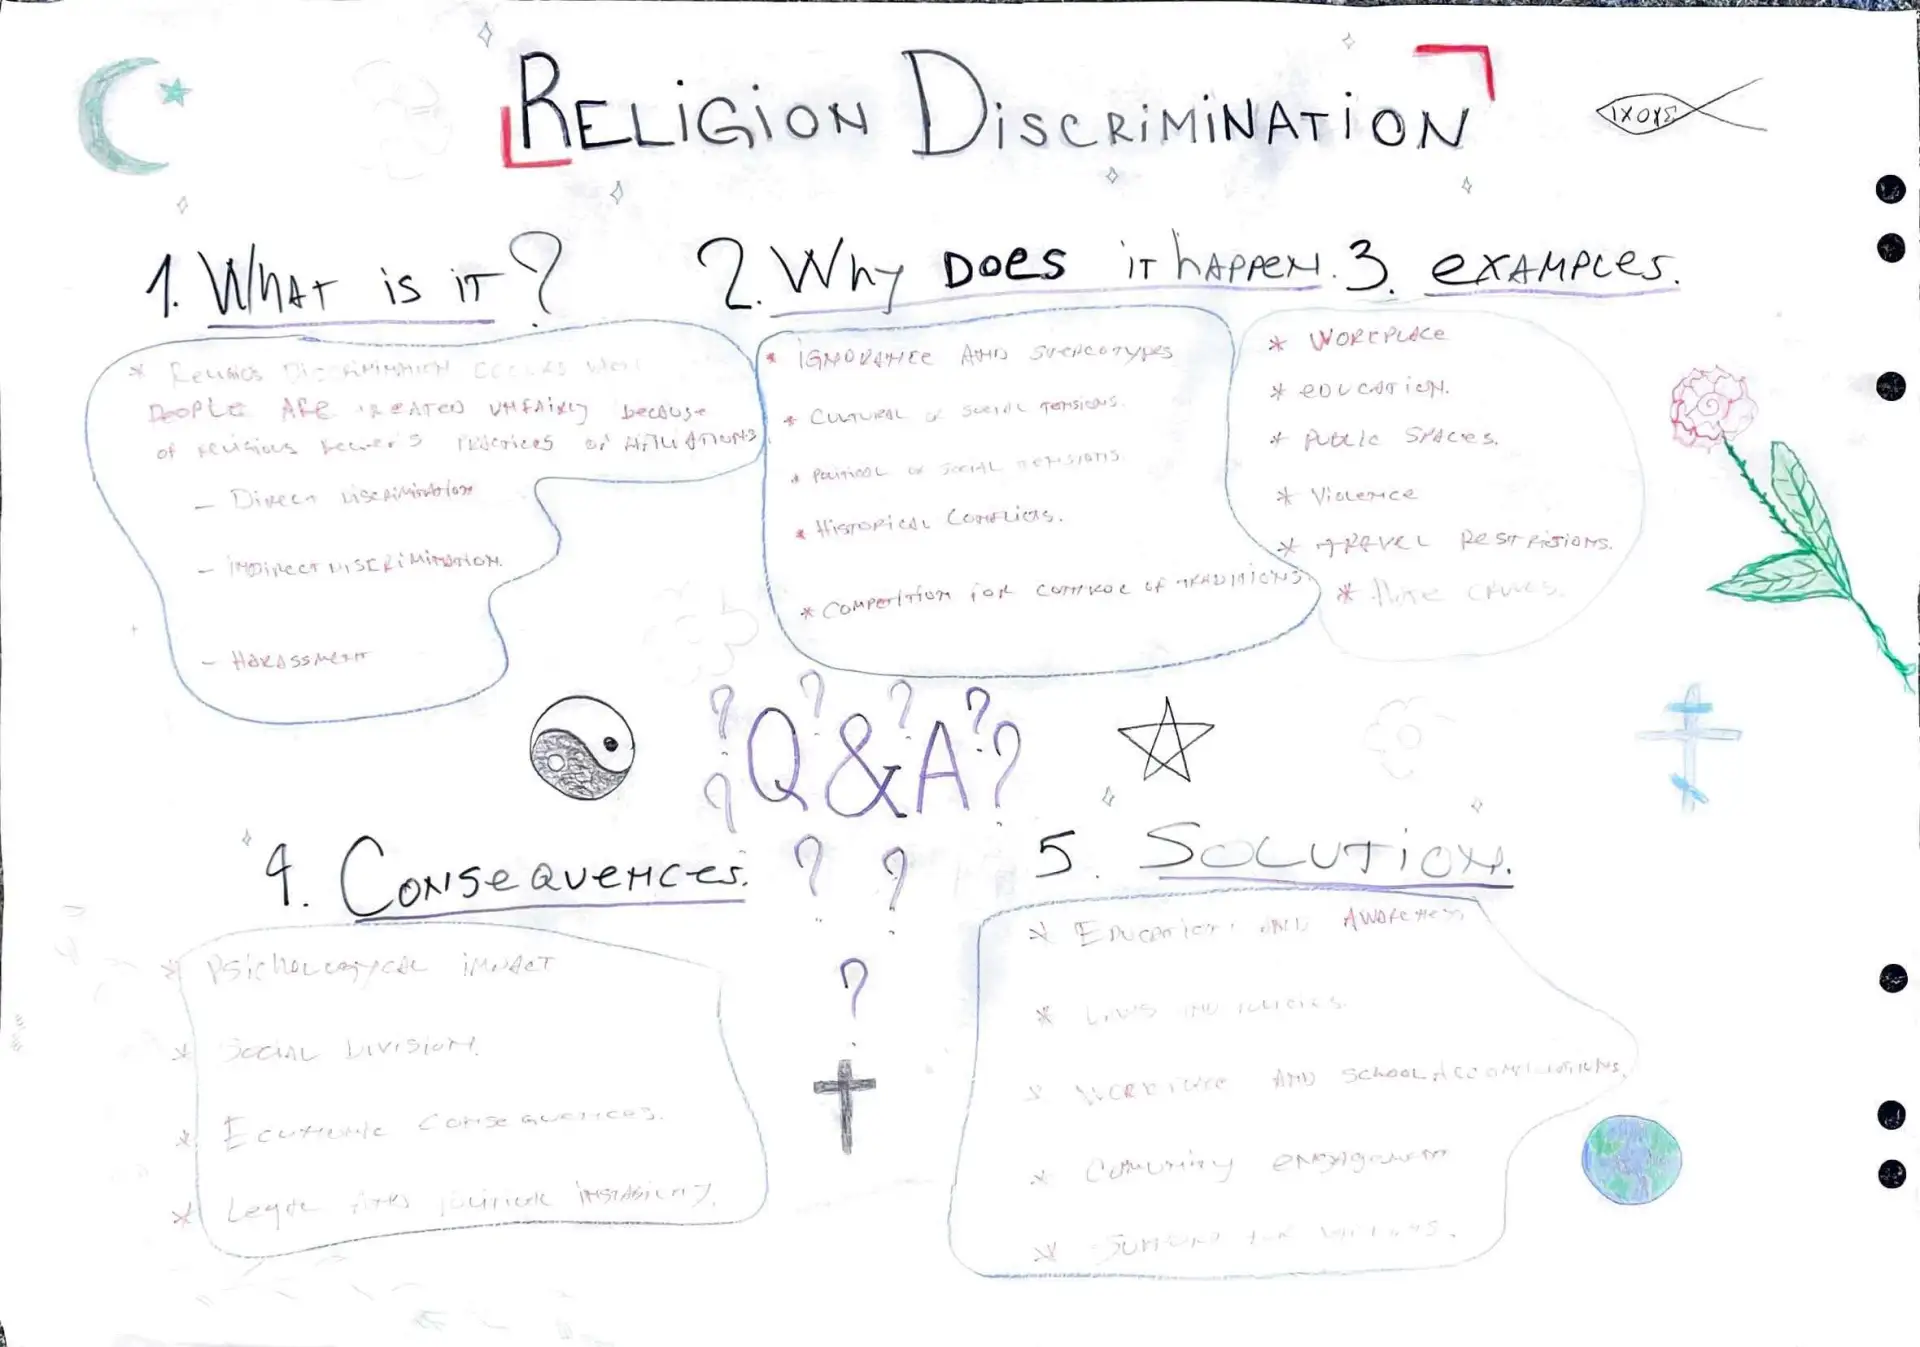 RELIGION DISCRIMINATION
ΙΧΟΥΣ
1. WHAT is iT?
2. Why DOES iT hAPPEN.
3. EXAMPLES.
* RELIGIOS DISCRIMINATION OCCURS
PEOPLE ARE TREATED UNFAIRLY because
of religious PRACTICES or AFFILIATIONS
- Direct Discrimination
- INDIRECT DISCRIMINATION.
- HARASSMENT
* IGNORANCE AND STEREOTYPES
* CULTURAL or SOCIAL TENSIONS.
* POLITICAL or SOCIAL TENSIONS.
* HISTORICAL CONFLICTS.
* COMPETITION FOR CONTROL OF TRADITIONS
* WORKPLACE
* EDUCATION.
* PUBLIC SPACES.
* Violence
* TRAVEL RESTRISIONS.
* HATE CRIMES.
? ? ? ?
? Q & A ?
? ?
?
4. CONSEQUENCES.
* PSICHOLOGYCAL IMPACT
* SOCIAL DIVISION.
* ECONOMIC CONSEQUENCES.
* Legal AND POLITICAL INSTABILITY.
5. SOLUTION.
* EDUCATION AND AWARENESS
* LAWS AND POLICIES.
* WORKPLACE AND SCHOOL ACCOMODATIONS.
* COMUNITY ENGAGEMENT
* SUPPORT FOR VICTIMS.